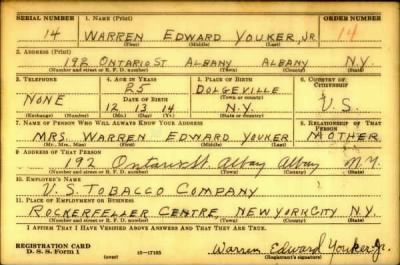 SERIAL NUMBER 1. NAME (Print) ORDER NUMBER
14 WARREN EDWARD YOUKER, JR. 14
(First) (Middle) (Last)
2. ADDRESS (Print)
192 ONTARIO ST ALBANY ALBANY N.Y.
(Number and street or R. F. D. number) (Town) (County) (State)
3. TELEPHONE 4. AGE IN YEARS 5. PLACE OF BIRTH 6. COUNTRY OF CITIZENSHIP
25 DOLGEVILLE
DATE OF BIRTH (Town or county)
NONE 12 13 14 N.Y. U.S.
(Exchange) (Number) (Mo.) (Day) (Yr.) (State or country)
7. NAME OF PERSON WHO WILL ALWAYS KNOW YOUR ADDRESS 8. RELATIONSHIP OF THAT PERSON
MRS. WARREN EDWARD YOUKER MOTHER
(Mr., Mrs., Miss) (First) (Middle) (Last)
9. ADDRESS OF THAT PERSON
192 Ontario St. Albany Albany N.Y.
(Number and street or R. F. D. number) (Town) (County) (State)
10. EMPLOYER'S NAME
U.S. TOBACCO COMPANY
11. PLACE OF EMPLOYMENT OR BUSINESS
ROCKERFELLER CENTRE NEW YORK CITY N.Y.
(Number and street or R. F. D. number) (Town) (County) (State)
I AFFIRM THAT I HAVE VERIFIED ABOVE ANSWERS AND THAT THEY ARE TRUE.
REGISTRATION CARD
D. S. S. Form 1 (over) 16—17105 Warren Edward Youker Jr.
(Registrant's signature)